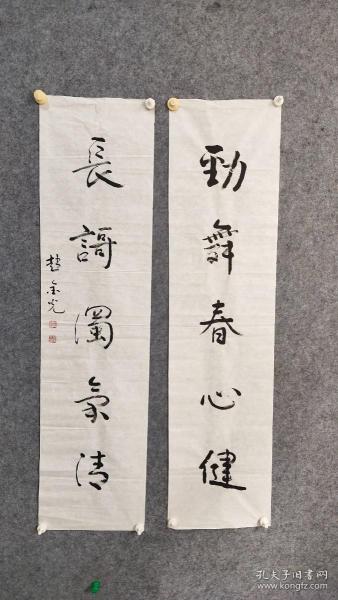 劲舞春心健
長謌濁氣清
楚金光
孔夫子旧书网
www.kongfz.com